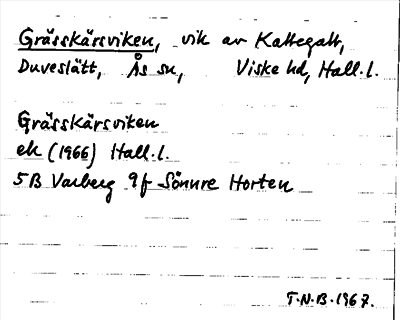 Grässkärsviken, vik av Kattegatt,
Duveslätt, Ås sn, Viske hd, Hall.l.
Grässkärsviken
ek (1966) Hall.l.
5B Varberg 9f Sönnre Horten
T.N.B. 1967.